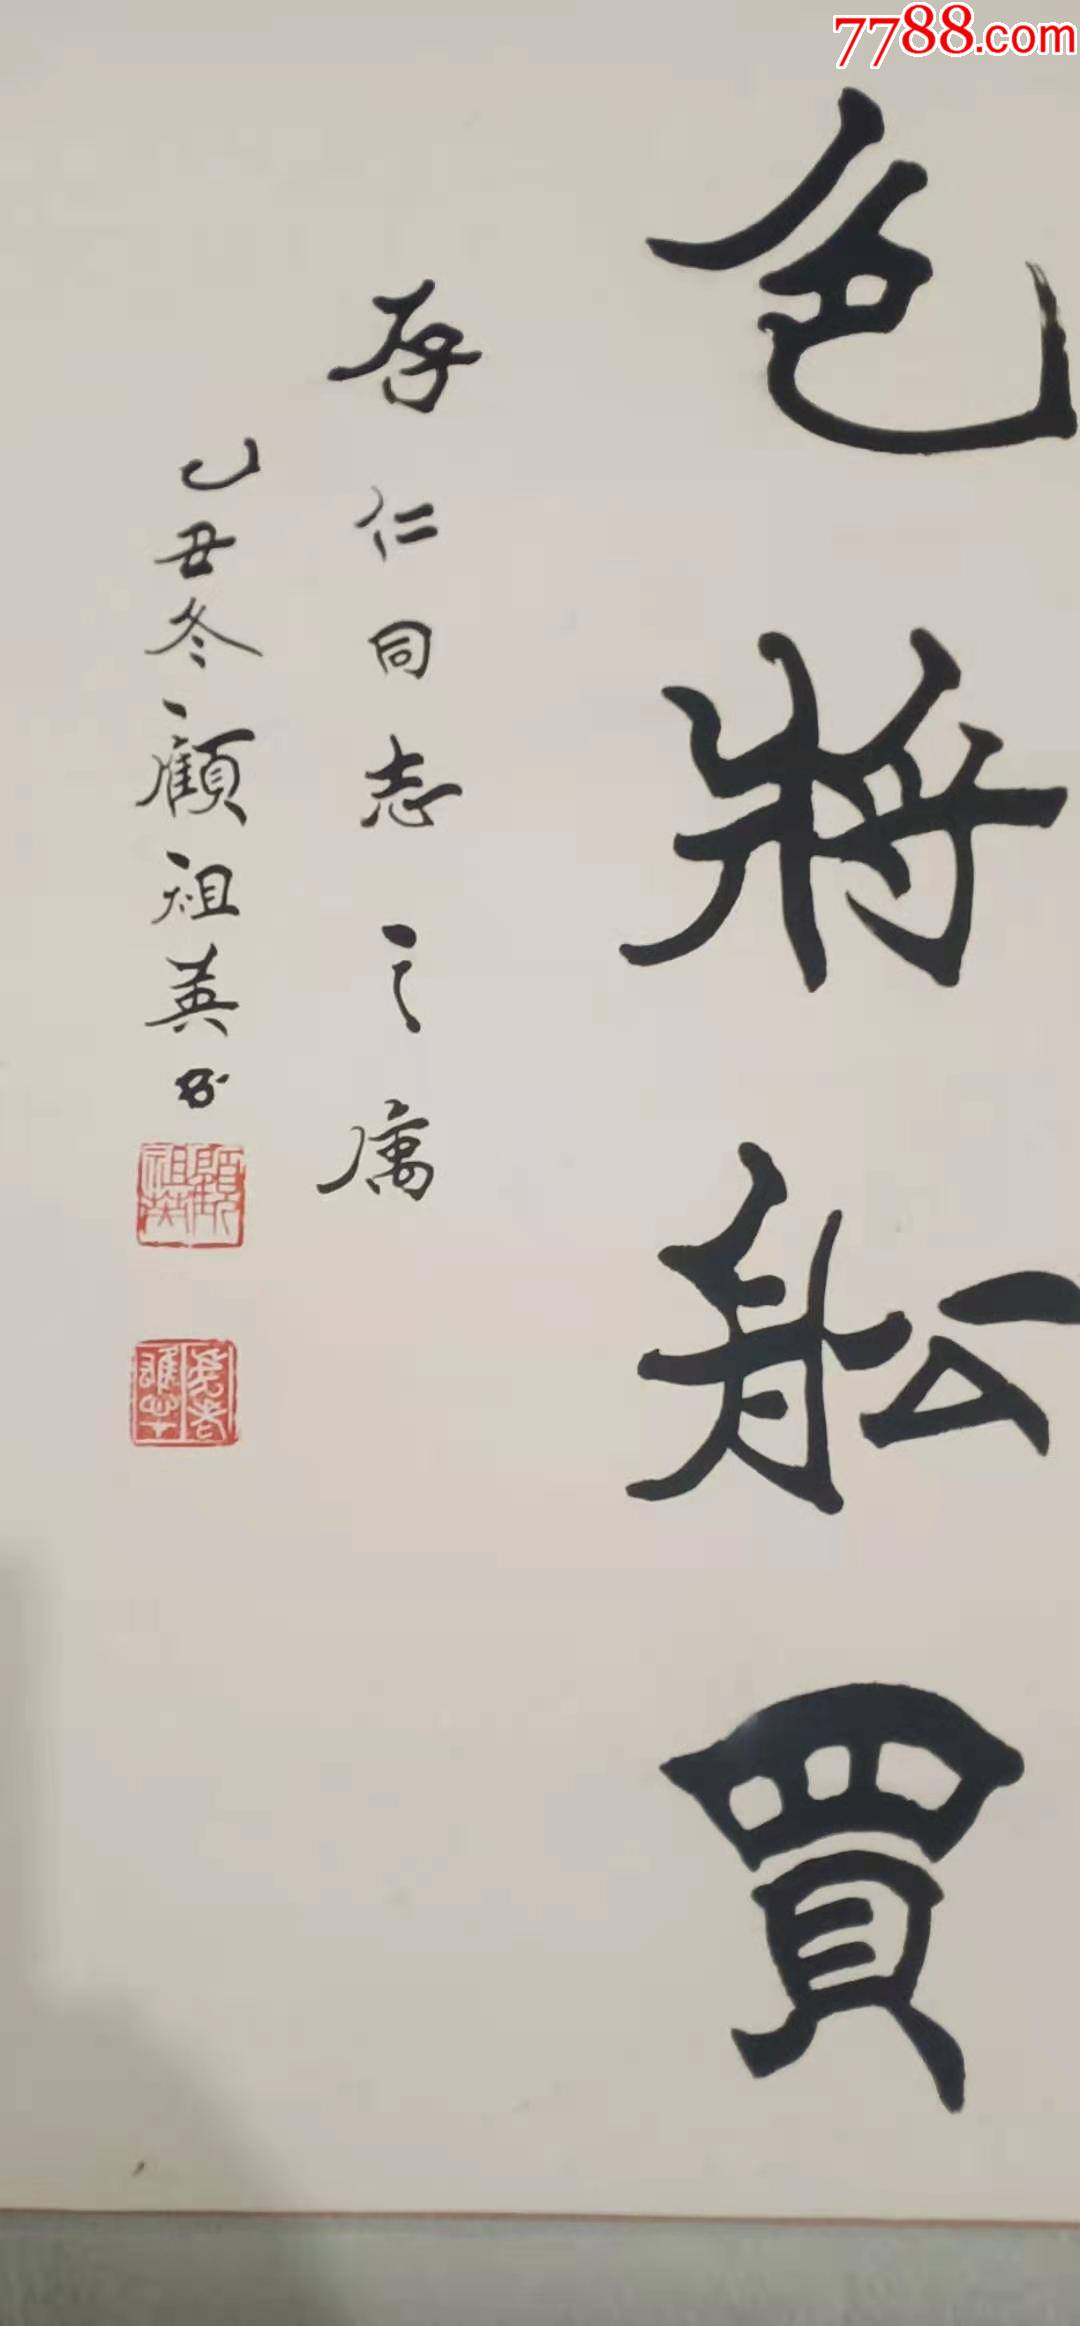 7788.com
色將船買
存仁同志之属
乙丑冬顧祖英书
顧祖英